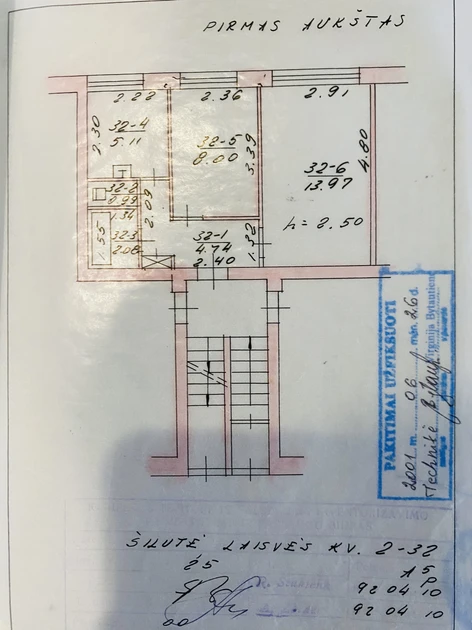 PIRMAS AUKŠTAS
2.22
2.36
2.91
2.30
32-4
5.11
32-5
8.00
3.39
32-6
13.97
4.80
32-2
0.99
1.34
2.09
1.55
32-3
2.08
32-1
4.74
2.40
1.32
h = 2.50
PAKITIMAI UŽFIKSUOTI
2001 m. 06 mėn. 26 d.
Technikė
Virginija Bytautienė
ŠILUTĖ LAISVĖS KV. 2-32
25 A5
P
92 04 10
92 04 10